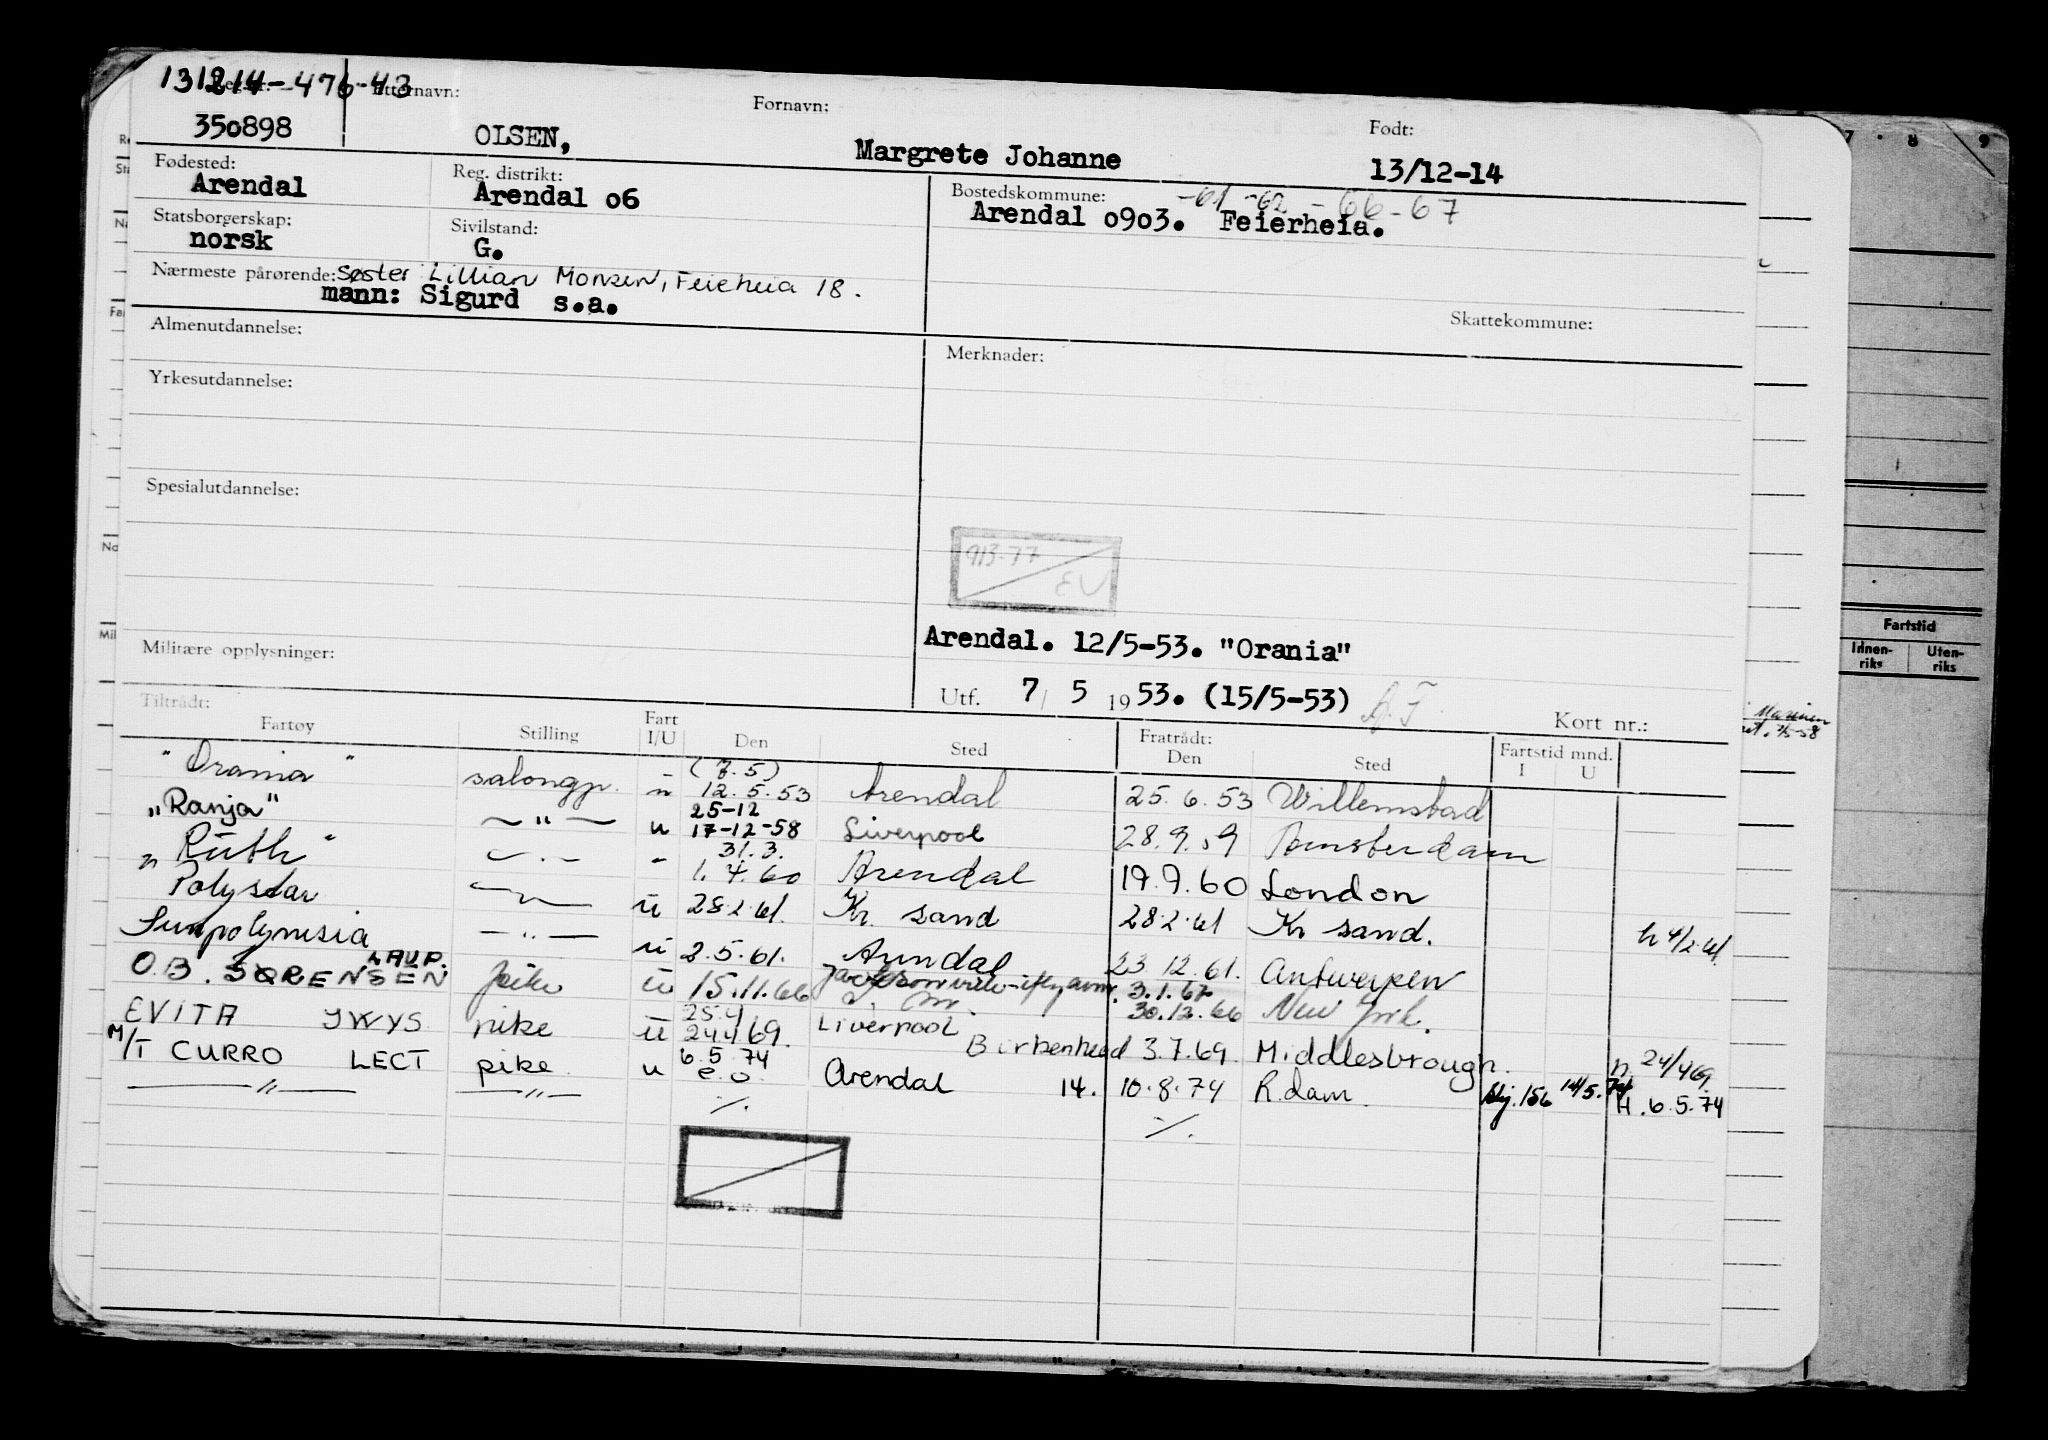 131214-476-43
Etternavn:
Fornavn:
Født:
350898
OLSEN,
Margrete Johanne
13/12-14
Fødested:
Arendal
Reg. distrikt:
Arendal o6
Bostedskommune: -61 -62 - 66-67
Arendal o9o3. Feierheia.
Statsborgerskap:
norsk
Sivilstand:
G.
Nærmeste pårørende: Søster Lillian Monsen, Feieheia 18.
mann: Sigurd s.a.
Skattekommune:
Almenutdannelse:
Merknader:
Yrkesutdannelse:
Spesialutdannelse:
913-77
EV
Arendal. 12/5-53. "Orania"
Militære opplysninger:
Utf. 7/ 5 1953. (15/5-53)
Kort nr.:
Tiltrådt:
Fartøy Stilling Fart I/U Den Sted Fratrådt: Den Sted Fartstid mnd. I U
(7.5)
"Orania" salongp. 12.5.53 Arendal 25.6.53 Willemstad
25-12
"Ranja" —"— u 17-12-58 Liverpool 28.9.59 Amsterdam
31.3.
"Ruth" - 1.4.60 Arendal 19.9.60 London
Polystar ü 28.2.61. Kr. sand 28.2.61 Kr sand. h 4/2.61
Sunpolynesia —"— ü 2.5.61. Arendal 23.12.61. Antwerpen
LAUP. 3.1.67
O.B. SØRENSEN pike ü 15.11.66 30.12.66 New York.
25.4
EVITA JWYS pike ü 24.4.69. Liverpool Birkenhead 3.7.69. Middlesbrough. n. 24/4 69.
6.5.74
M/T CURRO LECT pike u e.o. Arendal 14. 10.8.74 R.dam. 156 14/5.74 H. 6.5.74
—"— —"— ٪. ٪.
7 · 8 9
Fartstid
Innenriks Utenriks